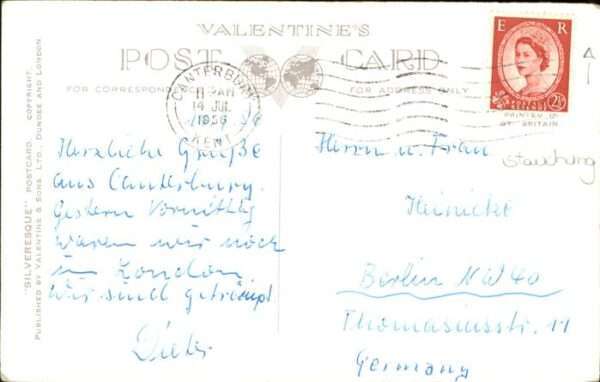 VALENTINE'S
POST CARD
FOR CORRESPONDENCE
FOR ADDRESS ONLY
CANTERBURY
14 JUL
1956
KENT
E R
2½
PRINTED IN
GT. BRITAIN
"SILVERESQUE" POSTCARD. COPYRIGHT.
PUBLISHED BY VALENTINE & SONS, LTD., DUNDEE AND LONDON.
Herzliche Grüße
aus Canterbury.
Gestern Vormittag
waren wir noch
in London.
Wir sind
Dieter
Herrn u. Frau
Heinicke
Berlin NW 40
Thomasiusstr. 11
Germany